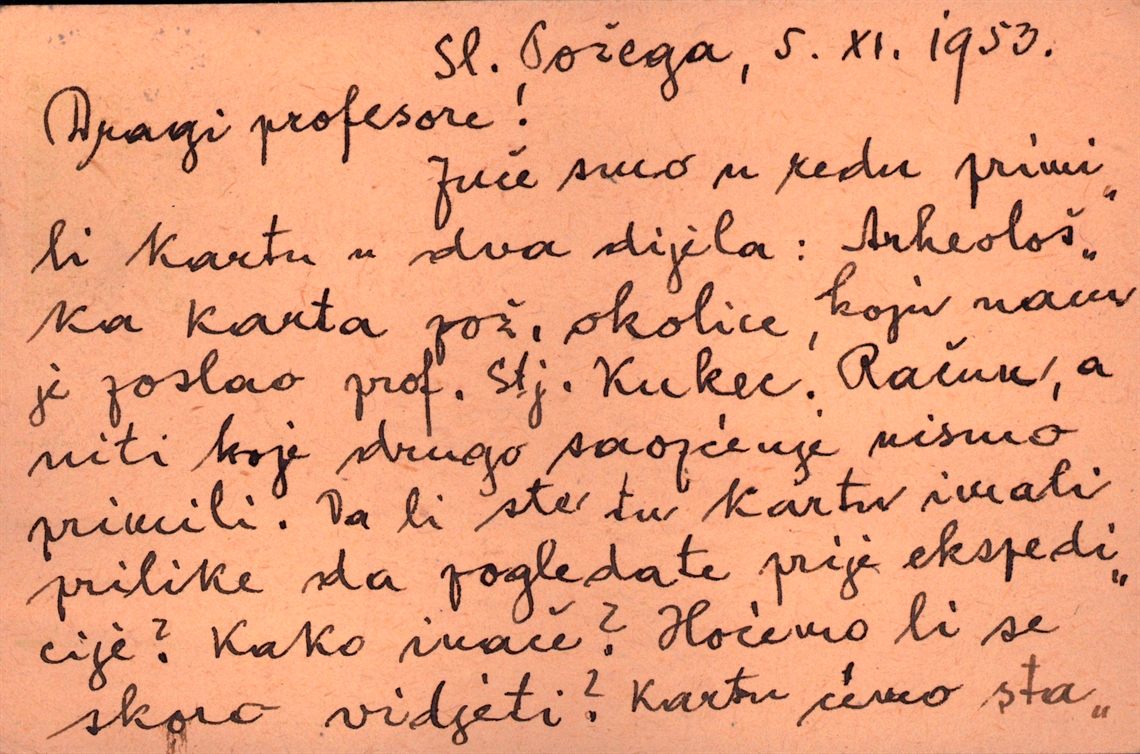 Sl. Požega, 5. XI. 1953.
Dragi profesore!
Juče smo u redu primi„
li kartu u dva dijela: Arheološ„
ka karta pož. okolice, koju nam
je poslao prof. Stj. Kukec. Račun, a
niti koje drugo saopćenje nismo
primili. Da li ste tu kartu imali
prilike da pogledate prije ekspedi„
cije? Kako inače? Hoćemo li se
skoro vidjeti? Kartu ćemo sta„